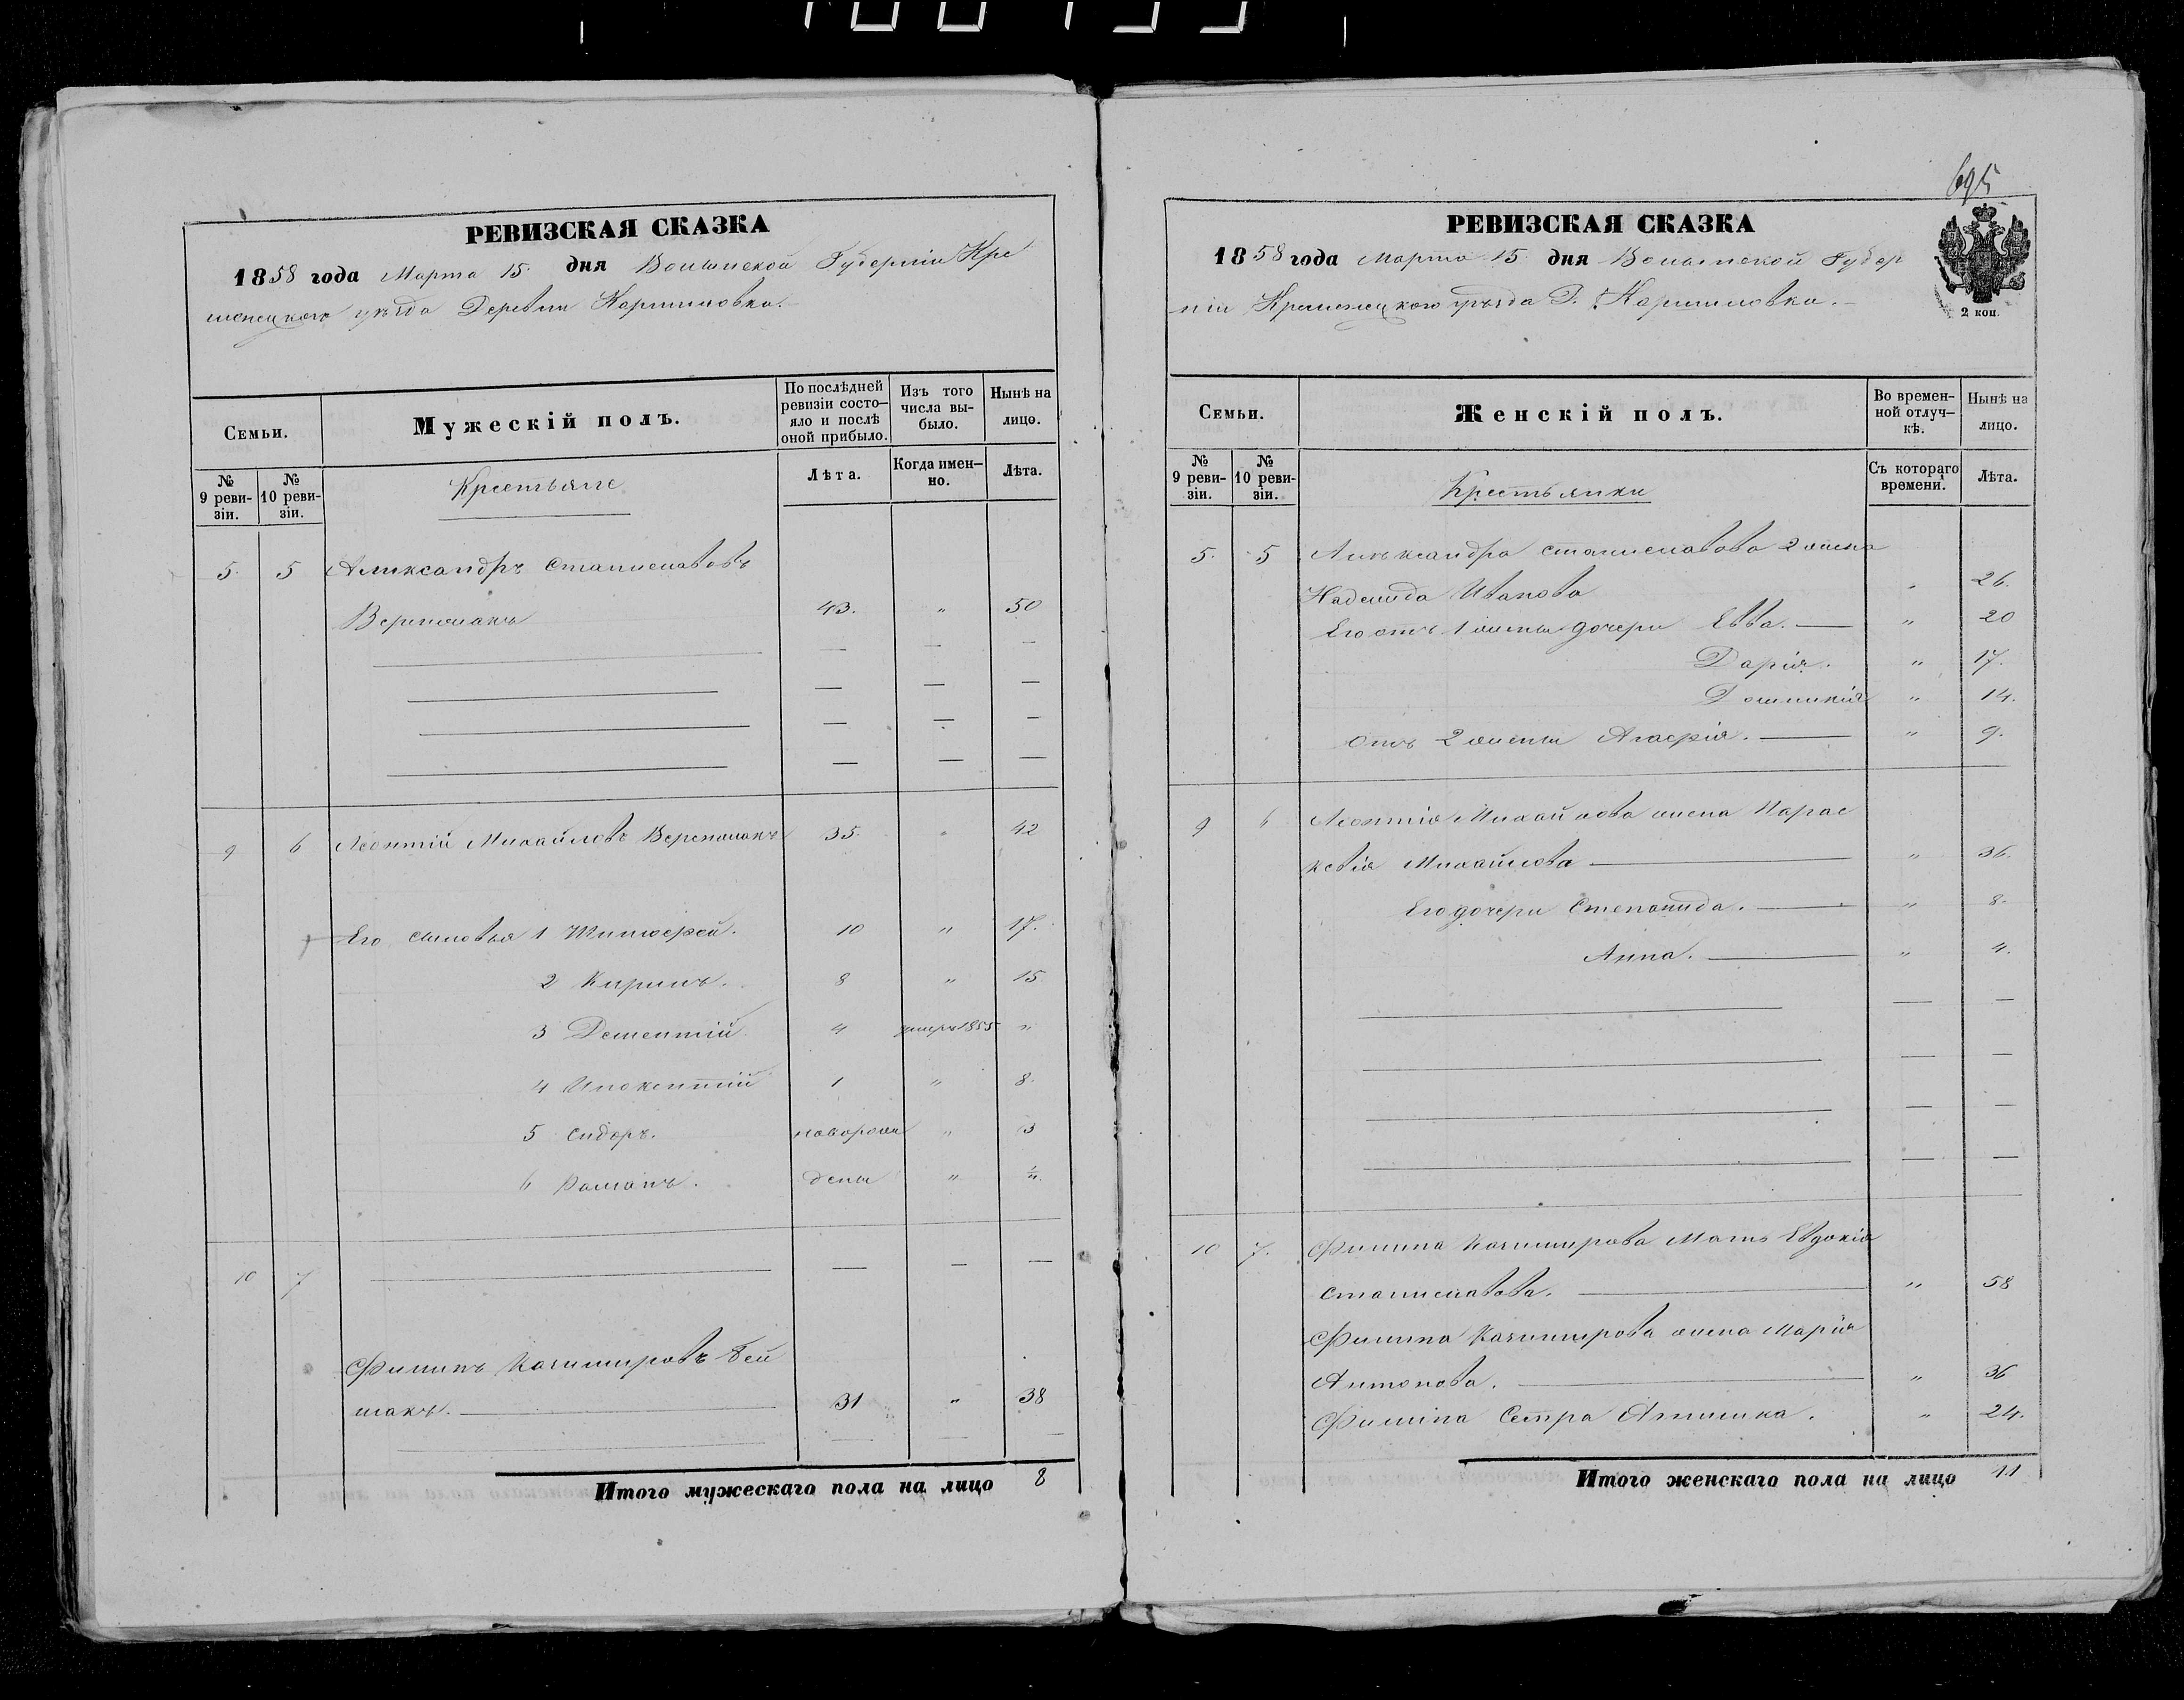 РЕВИЗСКАЯ СКАЗКА
1858 года Марта 15. дня Волынской Губерніи Кре
менецкого уѣзда Деревни
Семьи.
№ 9 реви-зіи.
№ 10 реви-зіи.
Мужескій полъ.
По послѣдней ревизіи состо-яло и послѣ оной прибыло.
Изъ того числа вы-было.
Нынѣ на лицо.
Лѣта.
Когда имен-но.
Лѣта.
Крестьяне
5. 5 Александръ Станиславовъ
43. " 50
9 6 Леонтій Михайловъ 35. " 42
Его сыновья 1 Тимофей. 10 " 17.
2 Кирилъ. 8 " 15
3 Дементій 4 умеръ 1855 "
4 Инокентій 1 " 8.
5 Сидоръ. новорож " 3
6 Романъ. дены "
10 7
Филипъ Казимировъ
31 " 38
Итого мужескаго пола на лицо 8
695
РЕВИЗСКАЯ СКАЗКА
1858 года Марта 15 дня Волынской Губер
ніи Кременецкого уѣзда Д.
2 коп.
Семьи.
№ 9 реви-зіи.
№ 10 реви-зіи.
Женскій полъ.
Во времен-ной отлуч-кѣ.
Нынѣ на лицо.
Съ котораго времени.
Лѣта.
Крестьянки
5. 5 Александра Станиславова 2 жена
Надежда Иванова " 26.
Его отъ 1 жены дочери Евва. " 20
Дарія. " 17.
Домникія " 14.
отъ 2 жены Агафія. " 9.
9 6 Леонтія Михайлова жена Парас
кевія Михайлова " 36.
Его дочери Степанида. " 8.
Анна. " 4.
10 7. Филипа Казимирова Мать Евдокія
Станиславова. " 58
Филипа Казимирова жена Марія
Антонова. " 36
Филипа Сестра " 24.
Итого женскаго пола на лицо 11